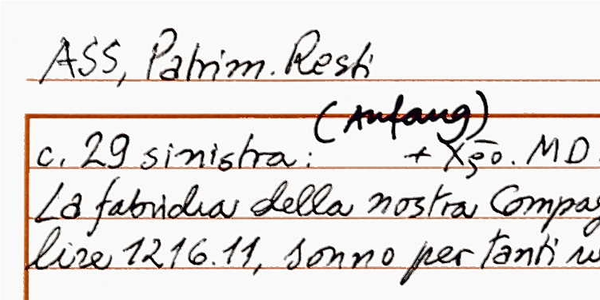 ASS, Patrim. Resti
(Anfang)
c. 29 sinistra: + Xṗo. MD.
La fabridia della nostra Compag
lire 1216.11, sonno per tanti